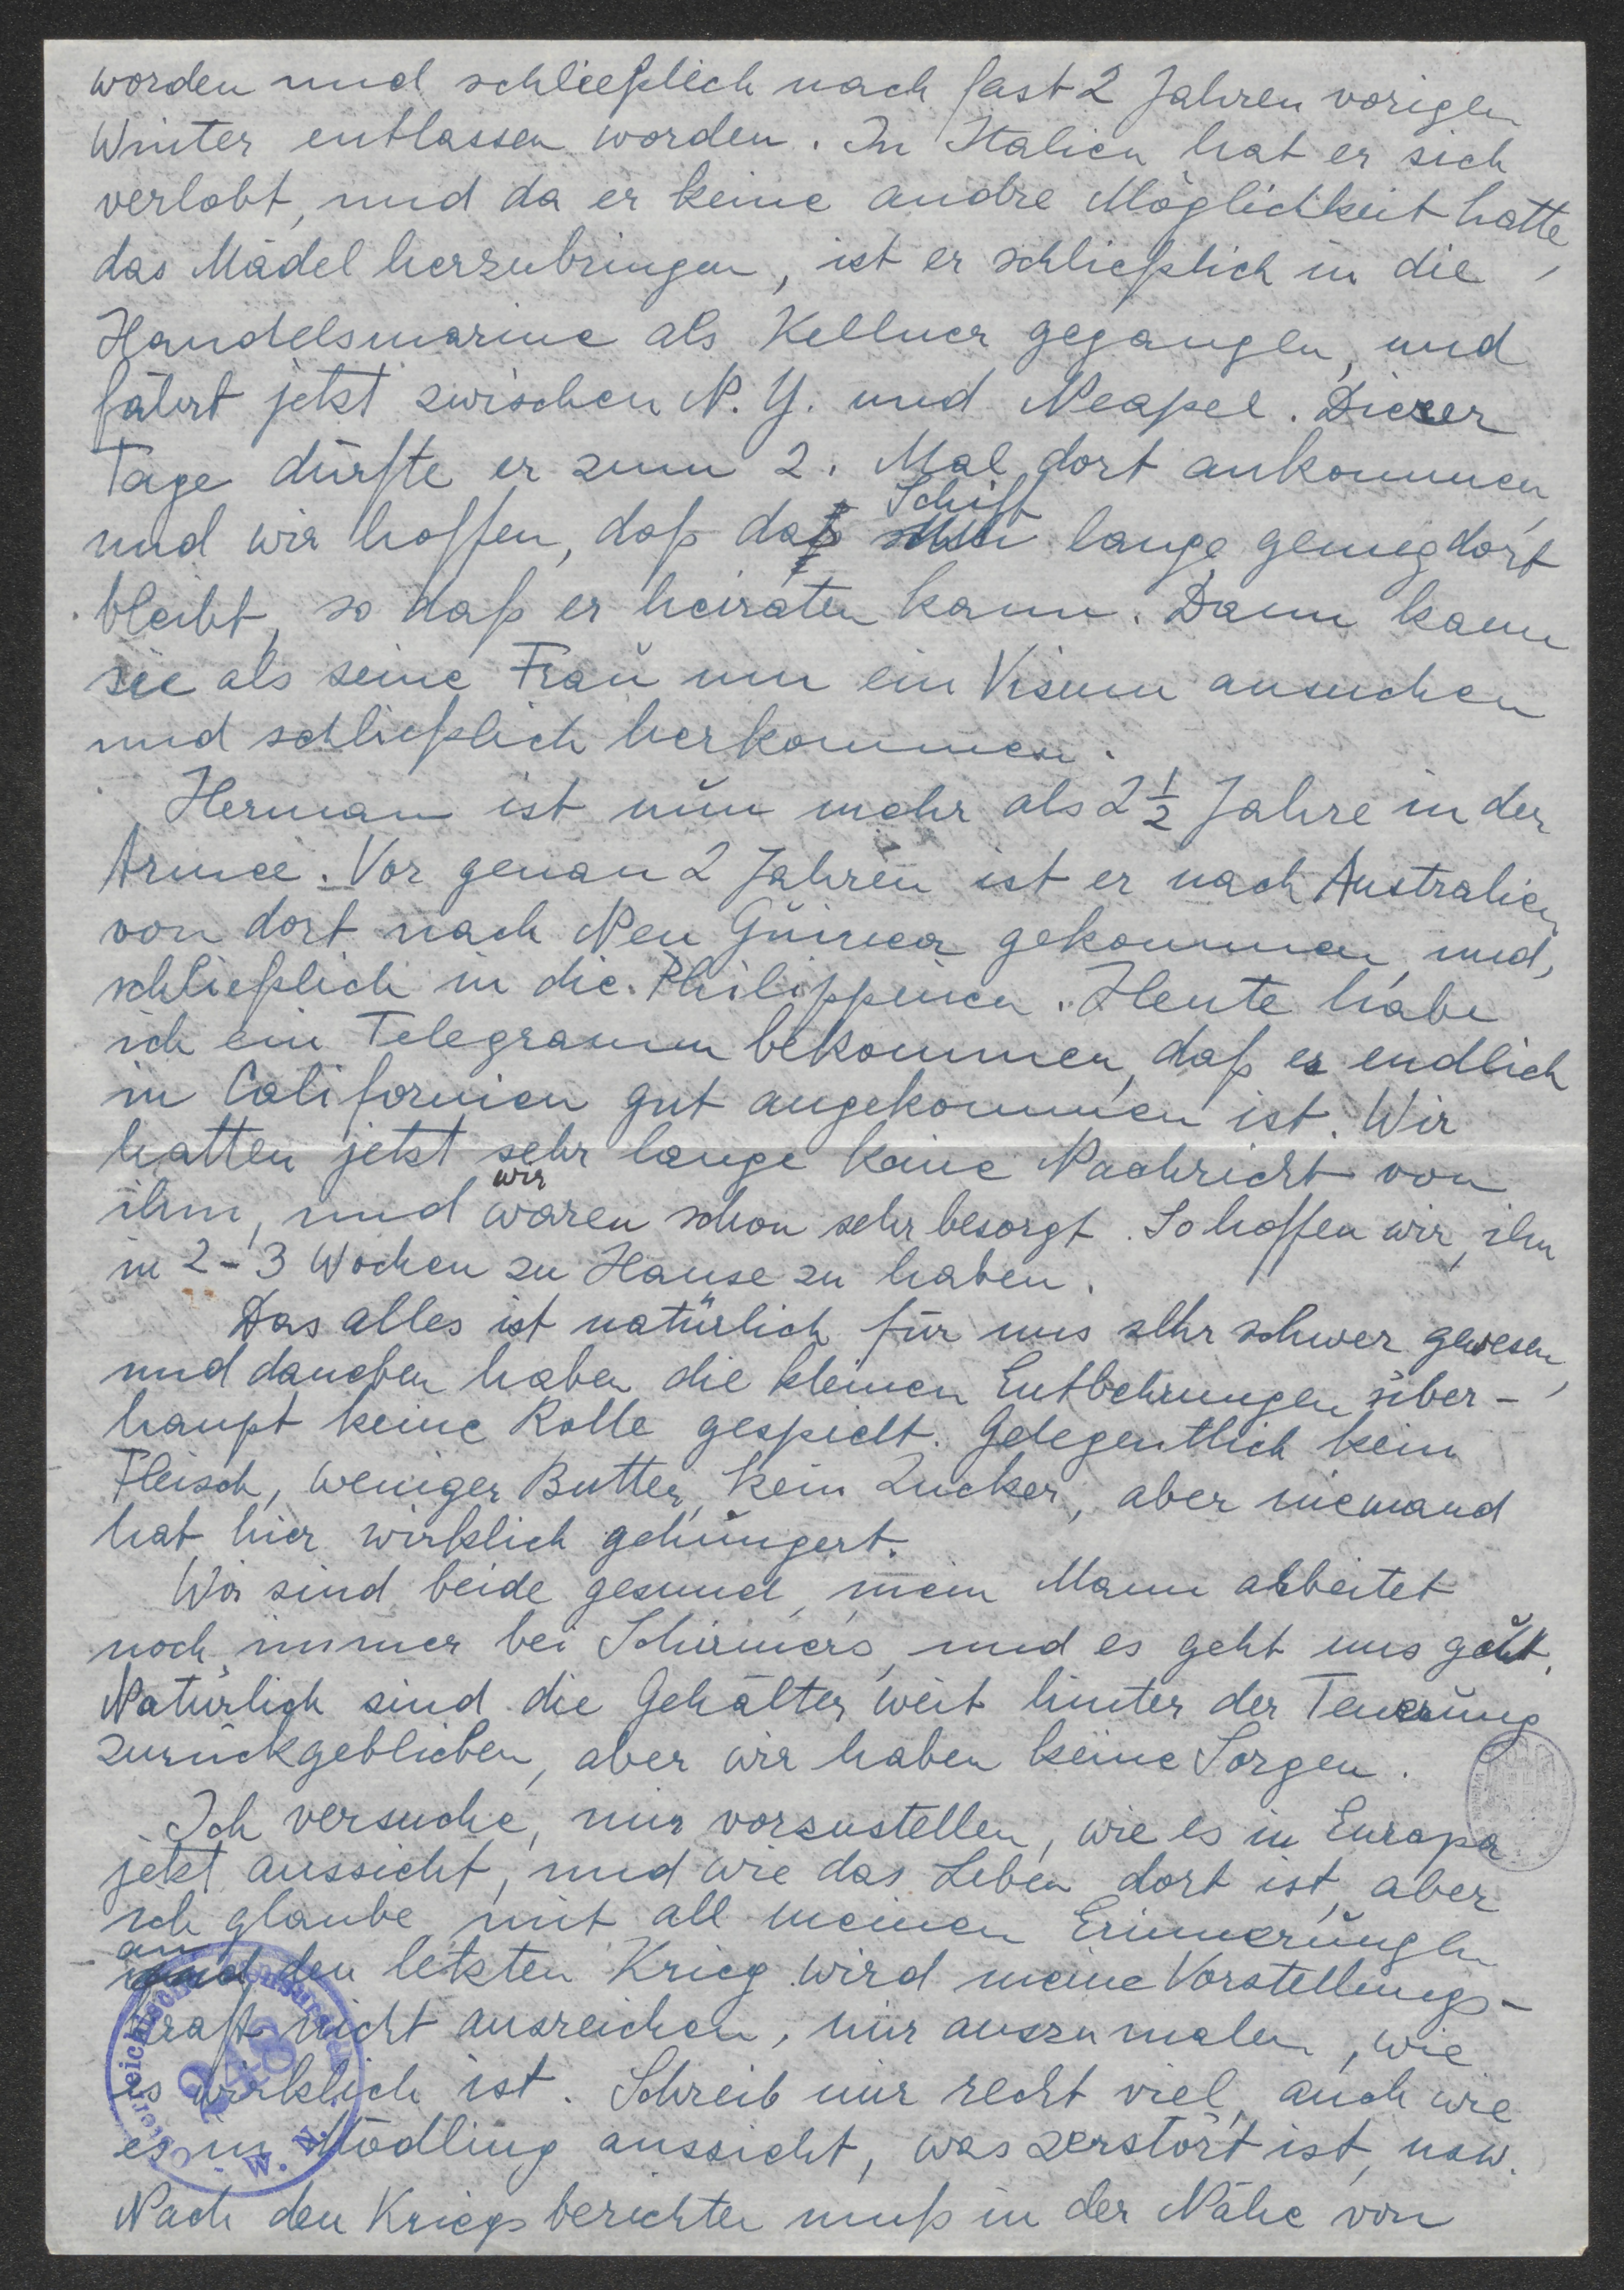 worden und schließlich nach fast 2 Jahren vorigen
Winter entlassen worden. In Italien hat er sich
verlobt, und da er keine andre Möglichkeit hatte,
das Mädel herzubringen, ist er schließlich in die
Handelsmarine als Kellner gegangen, und
fährt jetzt zwischen N. Y. und Neapel. Dieser
Tage dürfte er zum 2. Mal dort ankommen,
und wir hoffen, daß das Schiff lange genug dort
bleibt, so daß er heiraten kann. Dann kann
sie als seine Frau um ein Visum ansuchen
und schließlich herkommen.
Herman ist nun mehr als 2 1/2 Jahre in der
Armee. Vor genau 2 Jahren ist er nach Australien,
von dort nach Neu Guinea gekommen, und
schließlich in die Philippinen. Heute habe
ich ein Telegramm bekommen, daß er endlich
in Californien gut angekommen ist. Wir
hatten jetzt sehr lange keine Nachricht von
ihm, und wir waren schon sehr besorgt. So hoffen wir, ihn
in 2-3 Wochen zu Hause zu haben.
Das alles ist natürlich für uns sehr schwer gewesen,
und daneben haben die kleinen Entbehrungen über-
haupt keine Rolle gespielt. Gelegentlich kein
Fleisch, weniger Butter, kein Zucker, aber niemand
hat hier wirklich gehungert.
Wir sind beide gesund, mein Mann arbeitet
noch immer bei Schirmers, und es geht uns gut.
Natürlich sind die Gehälter weit hinter der Teuerung
zurückgeblieben, aber wir haben keine Sorgen.
Ich versuche, mir vorzustellen, wie es in Europa
jetzt aussieht, und wie das Leben dort ist, aber
ich glaube mit all meinen Erinnerungen
an den letzten Krieg wird meine Vorstellungs-
kraft nicht ausreichen, mir auszumalen, wie
es wirklich ist. Schreib mir recht viel, auch wie
es in Mödling aussieht, was zerstört ist, usw.
Nach den Kriegsberichten muß in der Nähe von
248
W. N.